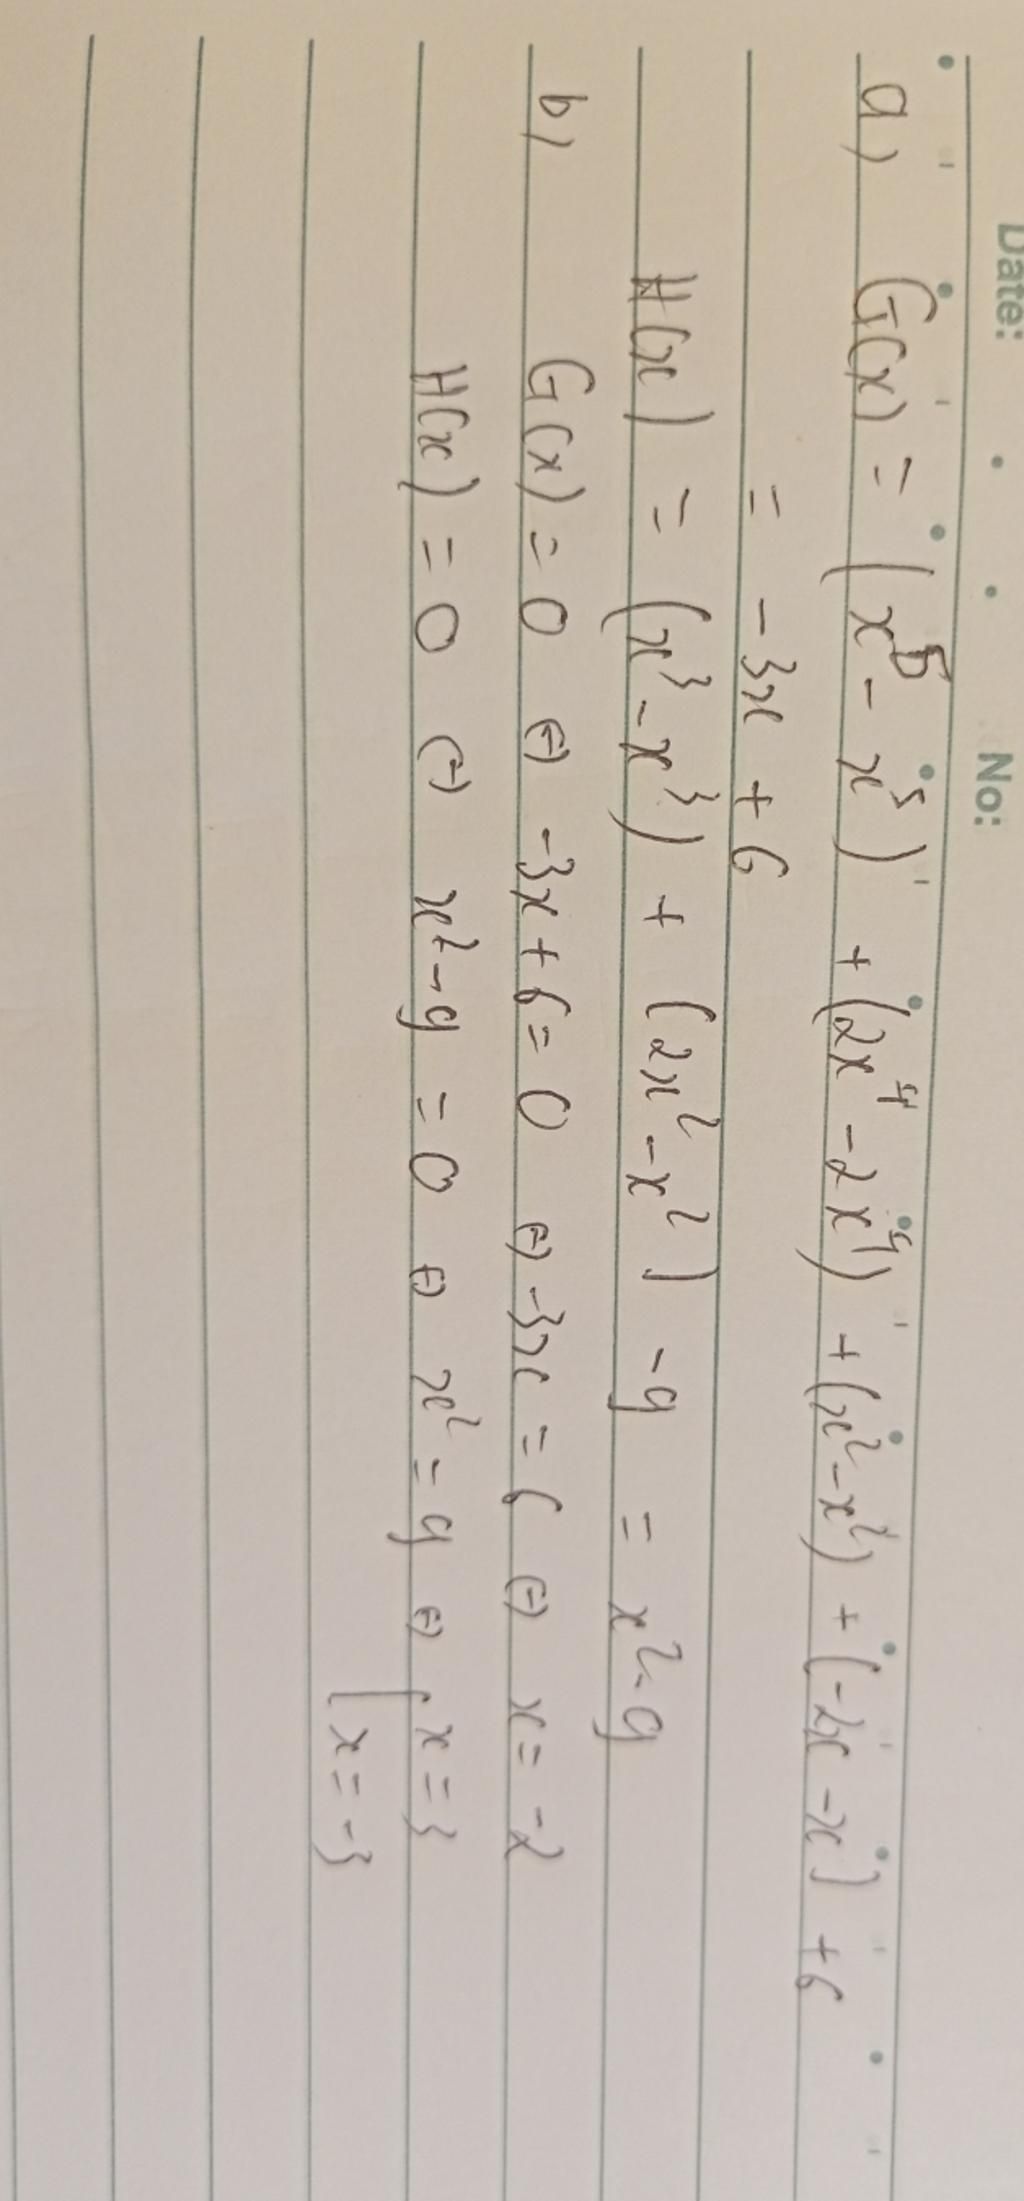 Date: No:
a) G(x) = (x⁵ - x⁵) + (2x⁴ - 2x⁴) + (x² - x²) + (-2x - x) + 6
= -3x + 6
H(x) = (x³ - x³) + (2x² - x²) - 9 = x² - 9
b) G(x) = 0 ⇔ -3x + 6 = 0 ⇔ -3x = 6 ⇔ x = -2
H(x) = 0 ⇔ x² - 9 = 0 ⇔ x² = 9 ⇔ [x = 3
x = -3